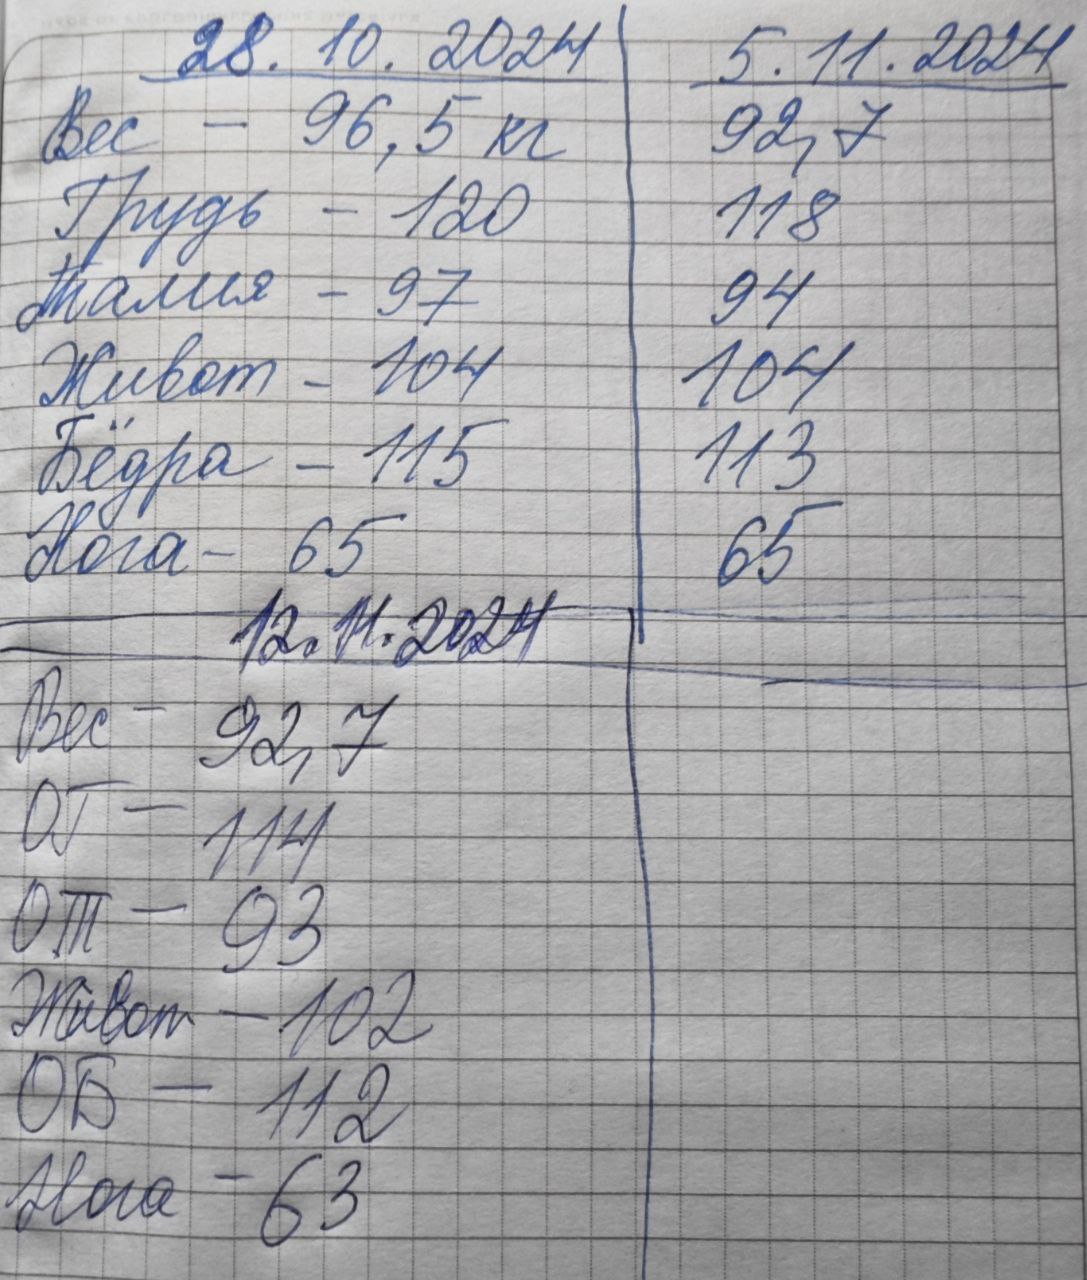 28.10.2024 5.11.2024
Вес - 96,5 кг 92,7
Грудь - 120 118
Талия - 97 94
Живот - 104 104
Бёдра - 115 113
Нога - 65 65
12.11.2024
Вес - 92,7
ОГ - 114
ОТ - 93
Живот - 102
ОБ - 112
Нога - 63